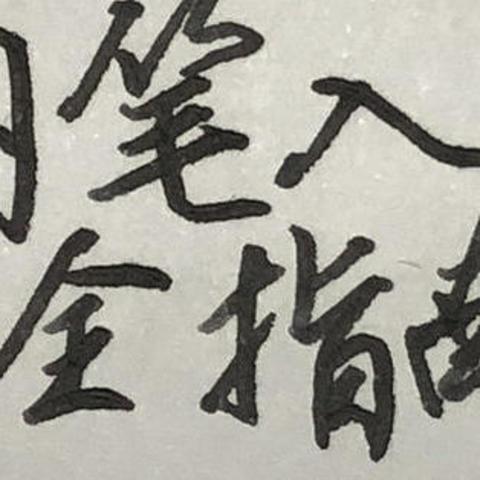 笔入
全指南